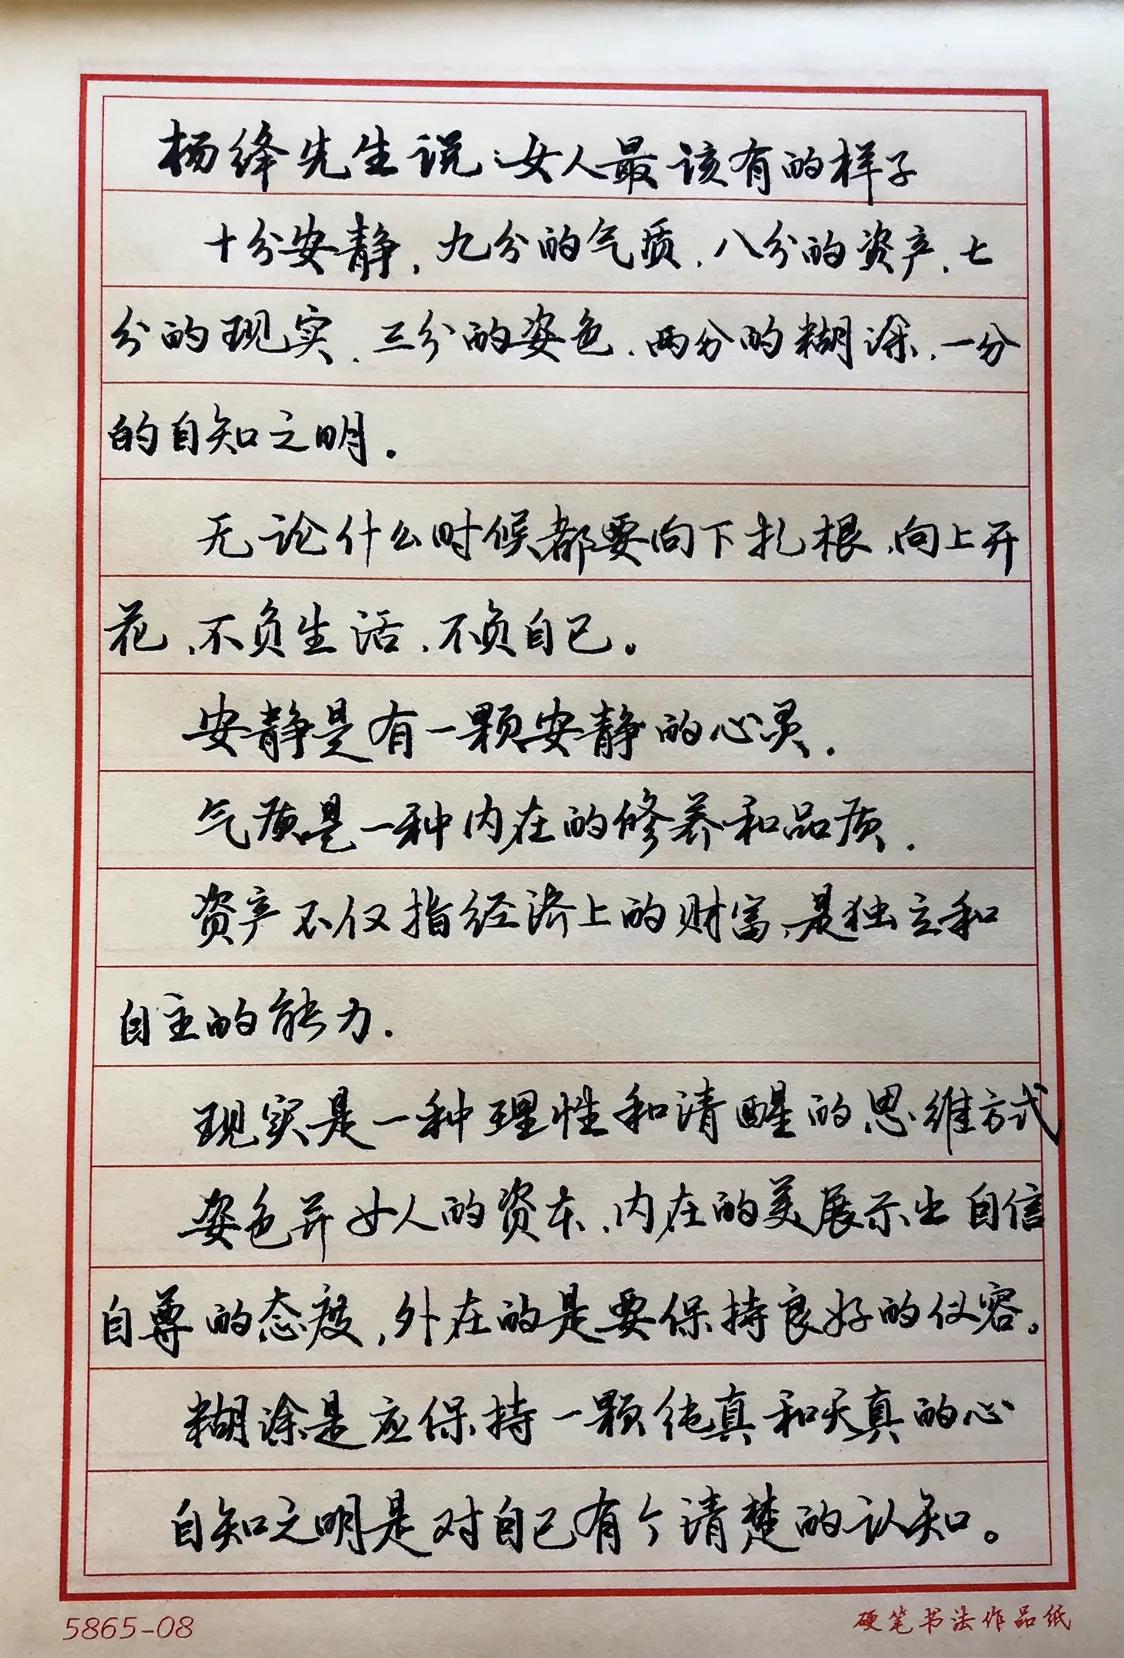 杨绛先生说:女人最该有的样子
十分安静,九分的气质,八分的资产,七
分的现实,三分的姿色,两分的糊涂,一分
的自知之明.
无论什么时候都要向下扎根,向上开
花,不负生活,不负自己。
安静是有一颗安静的心灵.
气质是一种内在的修养和品质.
资产不仅指经济上的财富,是独立和
自主的能力.
现实是一种理性和清醒的思维方式
姿色并女人的资本,内在的美展示出自信
自尊的态度,外在的是要保持良好的仪容。
糊涂是应保持一颗纯真和天真的心
自知之明是对自己有个清楚的认知。
5865-08
硬笔书法作品纸